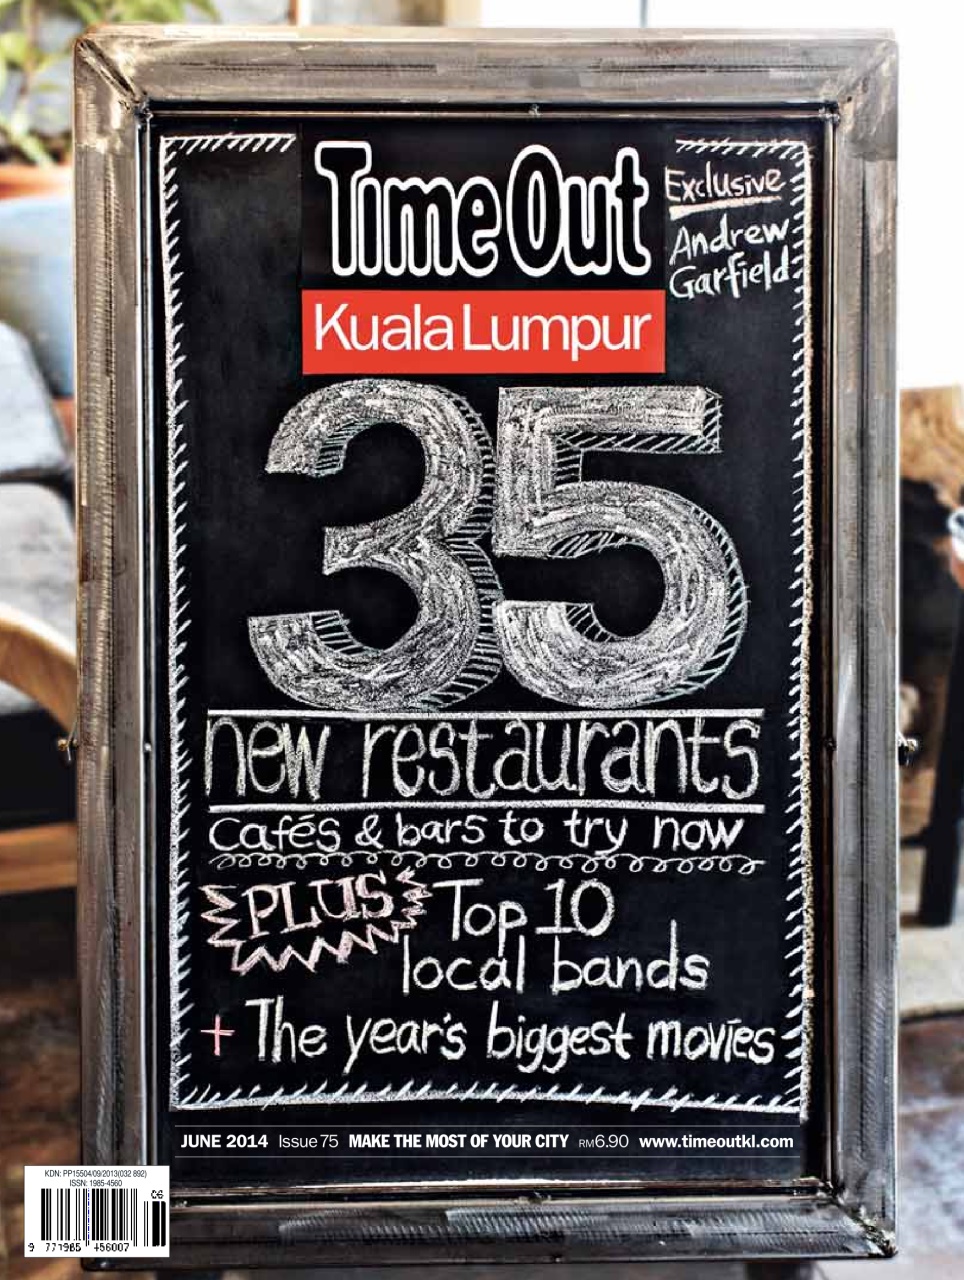 Time Out
Kuala Lumpur
Exclusive
Andrew
Garfield
35
new restaurants
Cafés & bars to try now
PLUS Top 10
local bands
+ The year's biggest movies
JUNE 2014 Issue 75 MAKE THE MOST OF YOUR CITY RM6.90 www.timeoutkl.com
KDN: PP15504/09/2013(032 892)
ISSN: 1985-4560
06
9 771985 456007